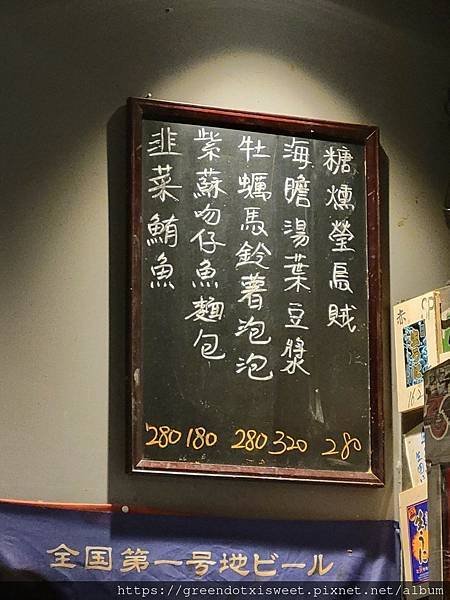 糖燻螢烏賊 280
海膽湯葉豆漿 320
牡蠣馬鈴薯泡泡 280
紫蘇吻仔魚麵包 180
韭菜鮪魚 280
全国第一号地ビール
https://greendotxisweet.pixnet.net/album